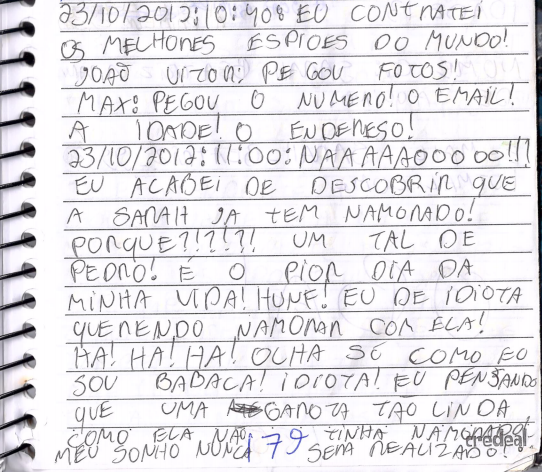 23/10/2012:10:40: EU CONTRATEI
OS MELHORES ESPIOES DO MUNDO!
JOAO VITOR: PEGOU FOTOS!
MAX: PEGOU O NUMERO! O EMAIL!
A IDADE! O ENDERESO!
23/10/2012:11:00: NAAAAAOOOOO!!!
EU ACABEI DE DESCOBRIR QUE
A SARAH JA TEM NAMORADO!
PORQUE?!?!?! UM TAL DE
PEDRO! É O PIOR DIA DA
MINHA VIDA! HUNF! EU DE IDIOTA
QUERENDO NAMORAR COM ELA!
HA! HA! HA! OLHA SÓ COMO EU
SOU BABACA! IDIOTA! EU PENSANDO
QUE UMA GAROTA TAO LINDA
COMO ELA NAO TINHA NAMORADO!
MEU SONHO NUNCA SERA REALIZADO!
179
credeal